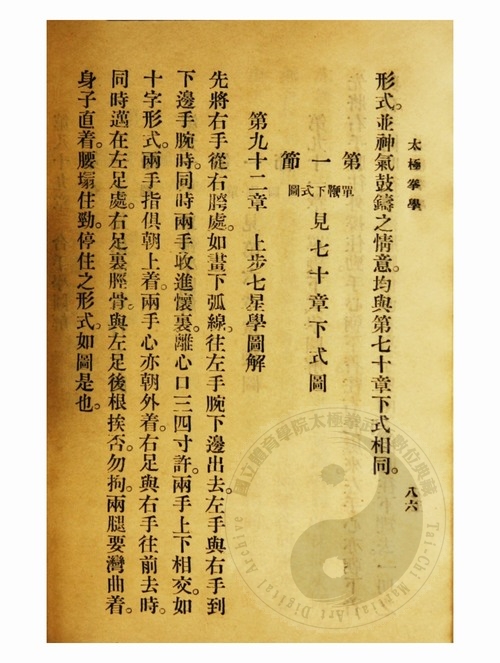 太極拳學
八六
形式。並神氣鼓鑄之情意。均與第七十章下式相同。
第一節
單鞭下式圖
見七十章下式圖
第九十二章 上步七星學圖解
先將右手從右胯處。如畫下弧線。往左手腕下邊出去。左手與右手到
下邊手腕時。同時兩手收進懷裏。離心口三四寸許。兩手上下相交。如
十字形式。兩手指俱朝上着。兩手心亦朝外着。右足與右手往前去時。
同時邁在左足處。右足裏脛骨。與左足後根挨否。勿拘。兩腿要灣曲着。
身子直着。腰塌住勁。停住之形式如圖是也。
國立體育學院太極拳武藝數位典藏
Tai-Chi Martial Art Digital Archive